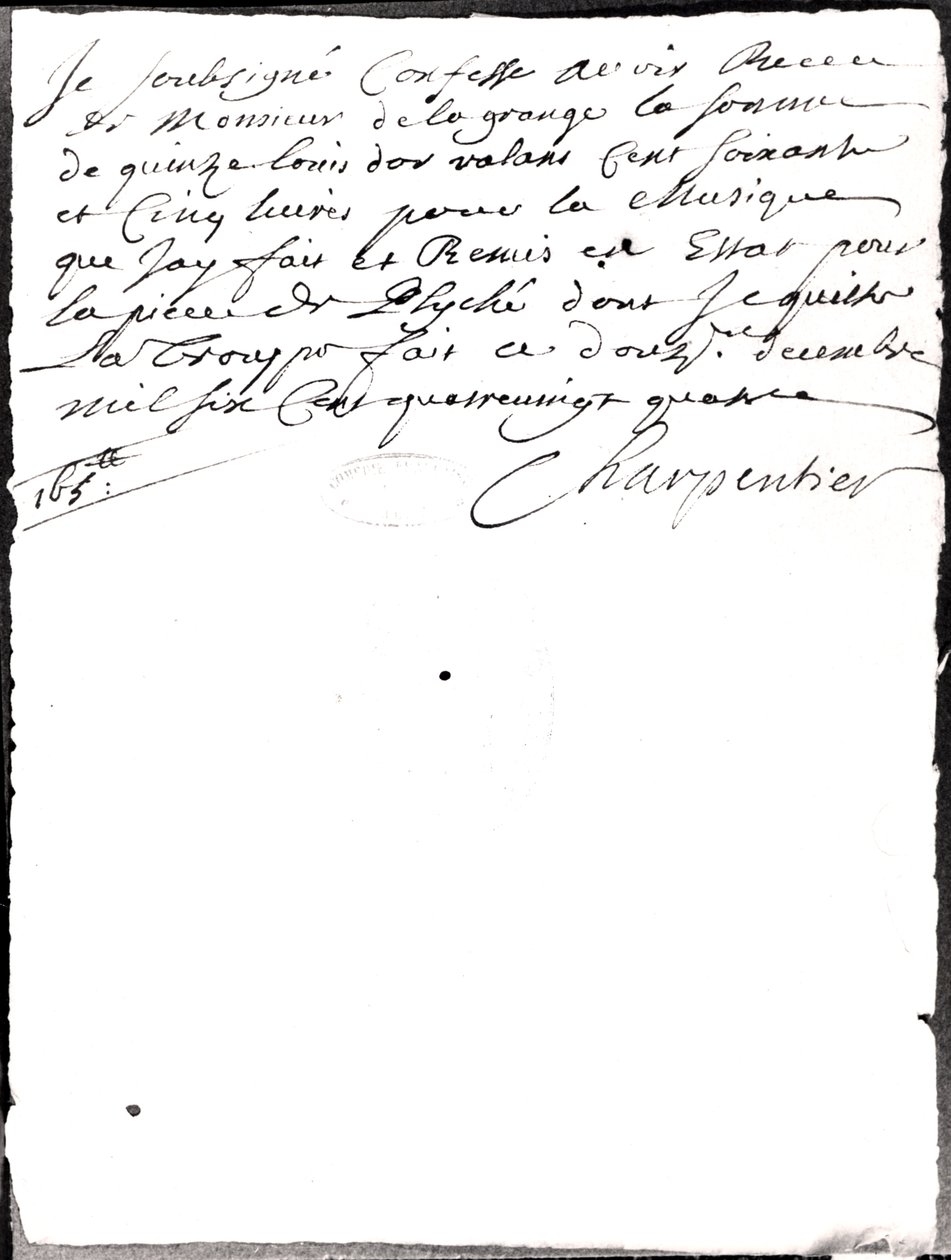 Je soubsigné Confesse avoir Receu
de Monsieur de la grange la somme
de quinze louis dor valant Cent soixante
et Cinq livres pour la Musique
que Jay fait et Remis en Estat pour
la piece de Psyché dont Je quitte
La Trouppe fait ce douzme. decembre
mil six Cent quatrevingt quatre
165tt:
Charpentier